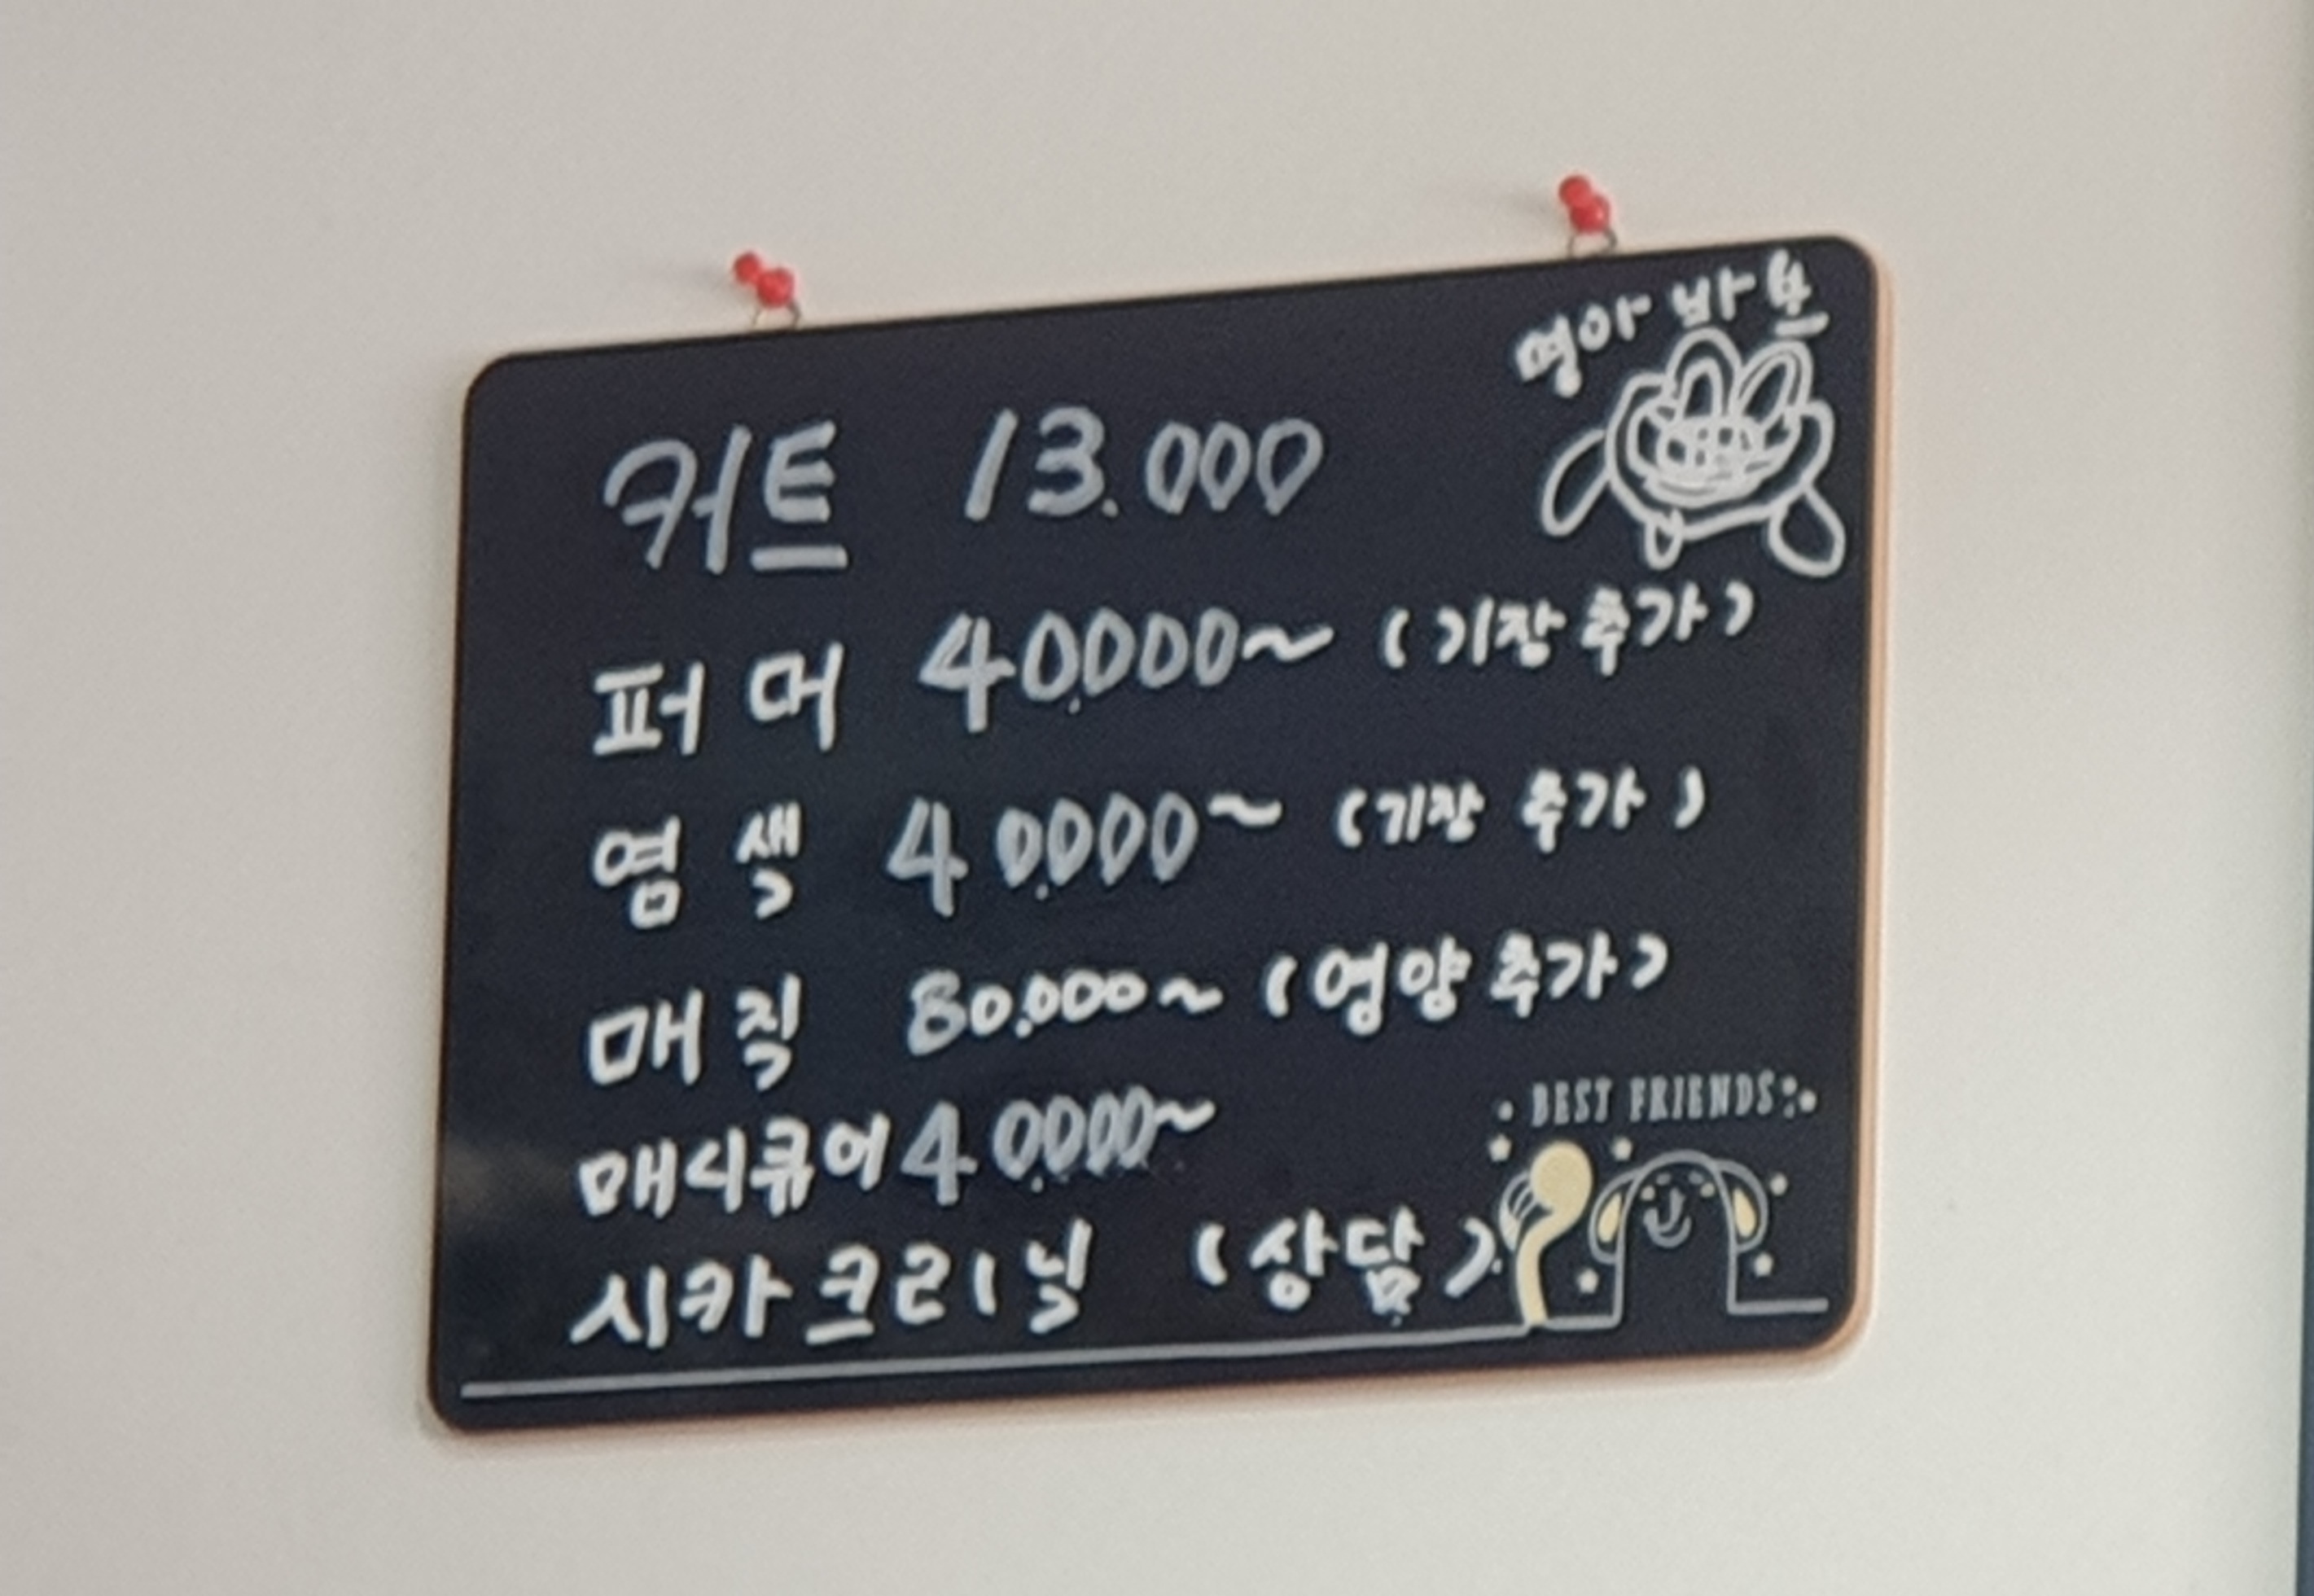 영아 바보
커트 13.000
퍼머 40.000~ (기장 추가)
염색 40.000~ (기장 추가)
매직 80.000~ (영양 추가)
매니큐어 40.000~
시카 크리닉 (상담)
BEST FRIENDS